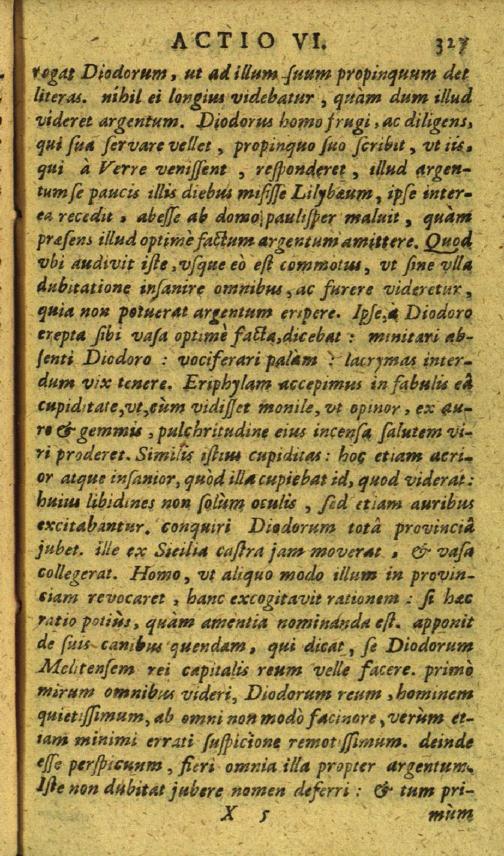 ACTIO VI. 327
rogat Diodorum, ut ad illum ſuum propinquum det
literas. nihil ei longius videbatur, quàm dum illud
videret argentum. Diodorus homo frugi, ac diligens,
qui ſua ſervare vellet, propinquo ſuo ſcribit, vt iis,
qui à Verre veniſſent, reſponderet, illud argen-
tum ſe paucis illis diebus miſiſſe Lilybæum, ipſe inter-
ea recedit, abeſſe ab domo pauliſper maluit, quàm
præſens illud optimè factum argentum amittere. Quod
vbi audivit iſte, vſque eò eſt commotus, vt ſine vlla
dubitatione inſanire omnibus, ac furere videretur,
quia non potuerat argentum eripere. Ipſe, a Diodoro
erepta ſibi vaſa optimè facta, dicebat: minitari ab-
ſenti Diodoro: vociferari palàm: lacrymas inter-
dum vix tenere. Eriphylam accepimus in fabulis eâ
cupiditate, vt, cùm vidiſſet monile, vt opinor, ex au-
ro & gemmis, pulchritudine eius incenſa ſalutem vi-
ri proderet. Similis iſtius cupiditas: hoc etiam acri-
or atque inſanior, quòd illa cupiebat id, quod viderat:
huius libidines non ſolùm oculis, ſed etiam auribus
excitabantur. conquiri Diodorum totâ provinciâ
jubet. ille ex Sicilia caſtra jam moverat, & vaſa
collegerat. Homo, vt aliquo modo illum in provin-
ciam revocaret, hanc excogitavit rationem: ſi hæc
ratio potiùs, quàm amentia nominanda eſt. apponit
de ſuis canibus quendam, qui dicat, ſe Diodorum
Melitenſem rei capitalis reum velle facere. primò
mirum omnibus videri, Diodorum reum, hominem
quietiſſimum, ab omni non modò facinore, verùm et-
iam minimi errati ſuſpicione remotiſſimum. deinde
eſſe perſpicuum, fieri omnia illa propter argentum.
Iſte non dubitat jubere nomen deferri: & tum pri-
X 5 mùm